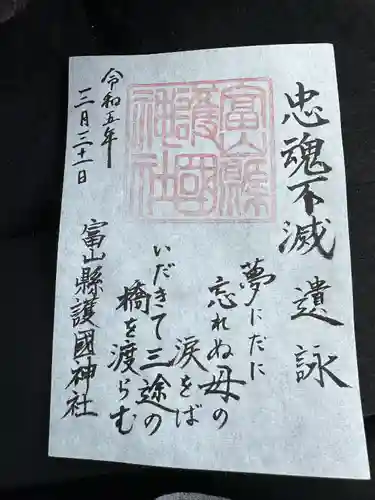 忠魂不滅
遺詠
夢にだに
忘れぬ母の
涙をば
いだきて三途の
橋を渡らむ
富山縣護國神社
令和五年
三月三十一日
富山縣
護國
神社